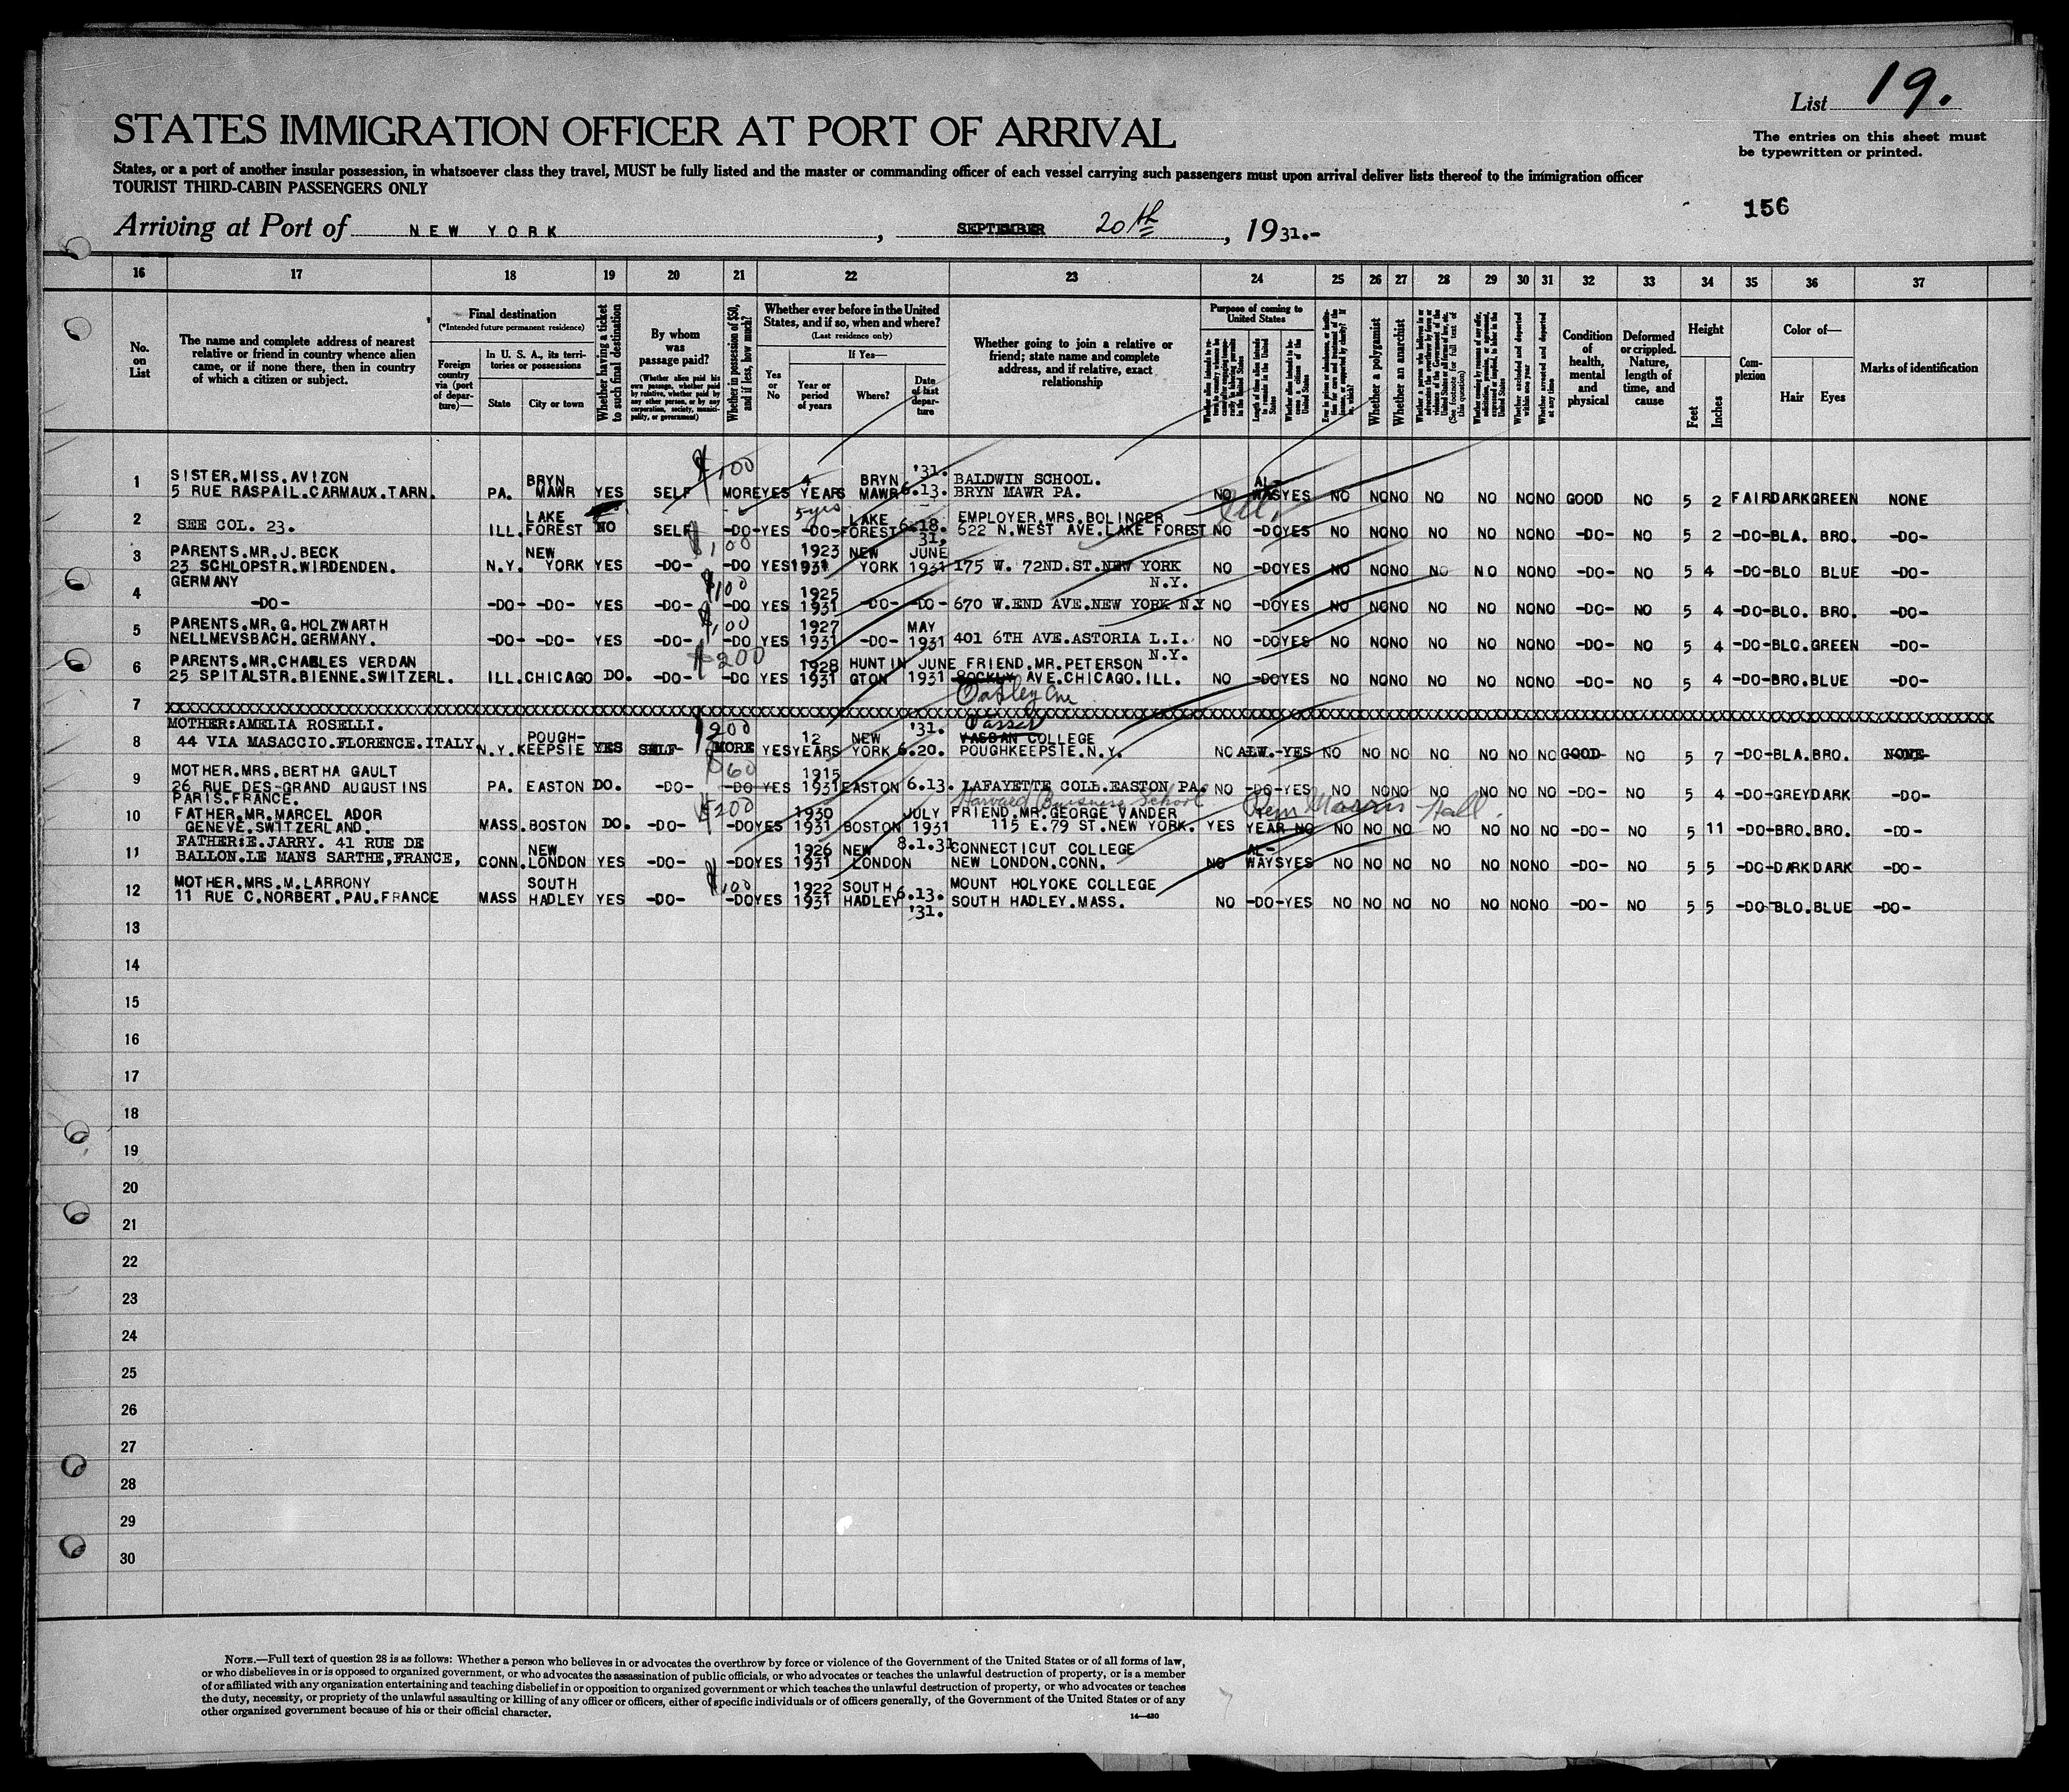 List 19.
STATES IMMIGRATION OFFICER AT PORT OF ARRIVAL
The entries on this sheet must
be typewritten or printed.
States, or a port of another insular possession, in whatsoever class they travel, MUST be fully listed and the master or commanding officer of each vessel carrying such passengers must upon arrival deliver lists thereof to the immigration officer
TOURIST THIRD-CABIN PASSENGERS ONLY
156
Arriving at Port of NEW YORK, SEPTEMBER 20th, 1931.-
16 17 18 19 20 21 22 23 24 25 26 27 28 29 30 31 32 33 34 35 36 37
No.
on
List
The name and complete address of nearest
relative or friend in country whence alien
came, or if none there, then in country
of which a citizen or subject.
Final destination
(*Intended future permanent residence)
Foreign
country
via (port
of depar-
ture)—
In U. S. A., its terri-
tories or possessions
State City or town
Whether having a ticket
to such final destination
By whom
was
passage paid?
(Whether alien paid his
own passage, whether paid
by relative, whether paid by
any other person, or by any
corporation, society, munici-
pality, or government)
Whether in possession of $50,
and if less, how much?
Whether ever before in the United
States, and if so, when and where?
(Last residence only)
Yes
or
No
If Yes—
Year or
period
of years
Where?
Date
of last
depar-
ture
Whether going to join a relative or
friend; state name and complete
address, and if relative, exact
relationship
Purpose of coming to
United States
Length of time alien intends
to remain in the United
States
Whether alien intends to be-
come a citizen of the
United States
Whether a polygamist
Whether an anarchist
Whether excluded and deported
within one year
Whether arrested and deported
at any time
Condition
of
health,
mental
and
physical
Deformed
or crippled.
Nature,
length of
time, and
cause
Height
Feet Inches
Com-
plexion
Color of—
Hair Eyes
Marks of identification
1 SISTER.MISS.AVIZON
5 RUE RASPAIL.CARMAUX.TARN. PA. BRYN MAWR YES SELF $100 MORE YES 4 YEARS BRYN MAWR '31. 6.13. BALDWIN SCHOOL.
BRYN MAWR PA. NO AL-WAYS YES NO NO NO NO NO NO NO GOOD NO 5 2 FAIR DARK GREEN NONE
2 SEE COL. 23. ILL. LAKE FOREST NO SELF -DO- YES 5 yrs -DO- LAKE FOREST 6.18. 31. EMPLOYER.MRS.BOLINGER
622 N.WEST AVE.LAKE FOREST NO -DO YES NO NO NO NO NO NO NO -DO- NO 5 2 -DO- BLA. BRO. -DO-
3 PARENTS.MR.J.BECK
23 SCHLOPSTR.WIRDENDEN.
GERMANY N.Y. NEW YORK YES -DO- $100 -DO YES 1923 1931 NEW YORK JUNE 1931 175 W. 72ND.ST.NEW YORK
N.Y. NO -DO YES NO NO NO NO NO NO NO -DO- NO 5 4 -DO- BLO BLUE -DO-
4 -DO- -DO- -DO- YES -DO- $100 -DO YES 1925 1931 -DO- -DO- 670 W.END AVE.NEW YORK N.Y NO -DO YES NO NO NO NO NO NO NO -DO- NO 5 4 -DO- BLO. BRO. -DO-
5 PARENTS.MR.G.HOLZWARTH
NELLMEVSBACH.GERMANY. -DO- -DO- YES -DO- $100 -DO YES 1927 1931 -DO- MAY 1931 401 6TH AVE.ASTORIA L.I.
N.Y. NO -DO YES NO NO NO NO NO NO NO -DO- NO 5 4 -DO- BLO. GREEN -DO-
6 PARENTS.MR.CHABLES VERDAN
25 SPITALSTR.BIENNE.SWITZERL. ILL. CHICAGO DO. -DO- $200 -DO YES 1928 1931 HUNTINGTON JUNE 1931 FRIEND.MR.PETERSON
AVE.CHICAGO.ILL. NO -DO YES NO NO NO NO NO NO NO -DO- NO 5 4 -DO- BRO. BLUE -DO-
7 XXXXXXXXXXXXXXXXXXXXXXXXXXXXXXXXXXXXXXXX
8 MOTHER:AMELIA ROSELLI.
44 VIA MASACCIO.FLORENCE.ITALY N.Y. POUGH-KEEPSIE YES SELF- $200 MORE YES 12 YEARS NEW YORK '31. 6.20. Vassar VASSAN COLLEGE
POUGHKEEPSIE.N.Y. NO ALW.-YES NO NO NO NO NO NO NO GOOD NO 5 7 -DO- BLA. BRO. NONE
9 MOTHER.MRS.BERTHA GAULT
26 RUE DES-GRAND AUGUSTINS
PARIS.FRANCE. PA. EASTON DO. -DO- $60 -DO YES 1915 1931 EASTON 6.13. LAFAYETTE COLL.EASTON PA. NO -DO-YES NO NO NO NO NO NO NO -DO- NO 5 4 -DO- GREY DARK -DO-
Harvard Business School
10 FATHER.MR.MARCEL ADOR
GENEVE.SWITZERLAND. MASS. BOSTON DO. -DO- $200 -DO YES 1930 1931 BOSTON JULY 1931 FRIEND.MR.GEORGE VANDER
115 E.79 ST.NEW YORK. YES YEAR NO NO NO NO NO NO NO NO -DO- NO 5 11 -DO- BRO. BRO. -DO-
Morris Hall.
11 FATHER:E.JARRY. 41 RUE DE
BALLON.LE MANS SARTHE,FRANCE, CONN. NEW LONDON YES -DO- -DO YES 1926 1931 NEW LONDON 8.1.31 CONNECTICUT COLLEGE
NEW LONDON.CONN. NO AL-WAYS YES NO NO NO NO NO NO NO -DO- NO 5 5 -DO- DARK DARK -DO-
12 MOTHER.MRS.M.LARRONY
11 RUE C.NORBERT.PAU.FRANCE MASS SOUTH HADLEY YES -DO- $100 -DO YES 1922 1931 SOUTH HADLEY 6.13. '31. MOUNT HOLYOKE COLLEGE
SOUTH HADLEY.MASS. NO -DO-YES NO NO NO NO NO NO NO -DO- NO 5 5 -DO- BLO. BLUE -DO-
13
14
15
16
17
18
19
20
21
22
23
24
25
26
27
28
29
30
NOTE.—Full text of question 28 is as follows: Whether a person who believes in or advocates the overthrow by force or violence of the Government of the United States or of all forms of law,
or who disbelieves in or is opposed to organized government, or who advocates the assassination of public officials, or who advocates or teaches the unlawful destruction of property, or is a member
of or affiliated with any organization entertaining and teaching disbelief in or opposition to organized government or which teaches the unlawful destruction of property, or who advocates or teaches
the duty, necessity, or propriety of the unlawful assaulting or killing of any officer or officers, either of specific individuals or of officers generally, of the Government of the United States or of any
other organized government because of his or their official character.
14—430